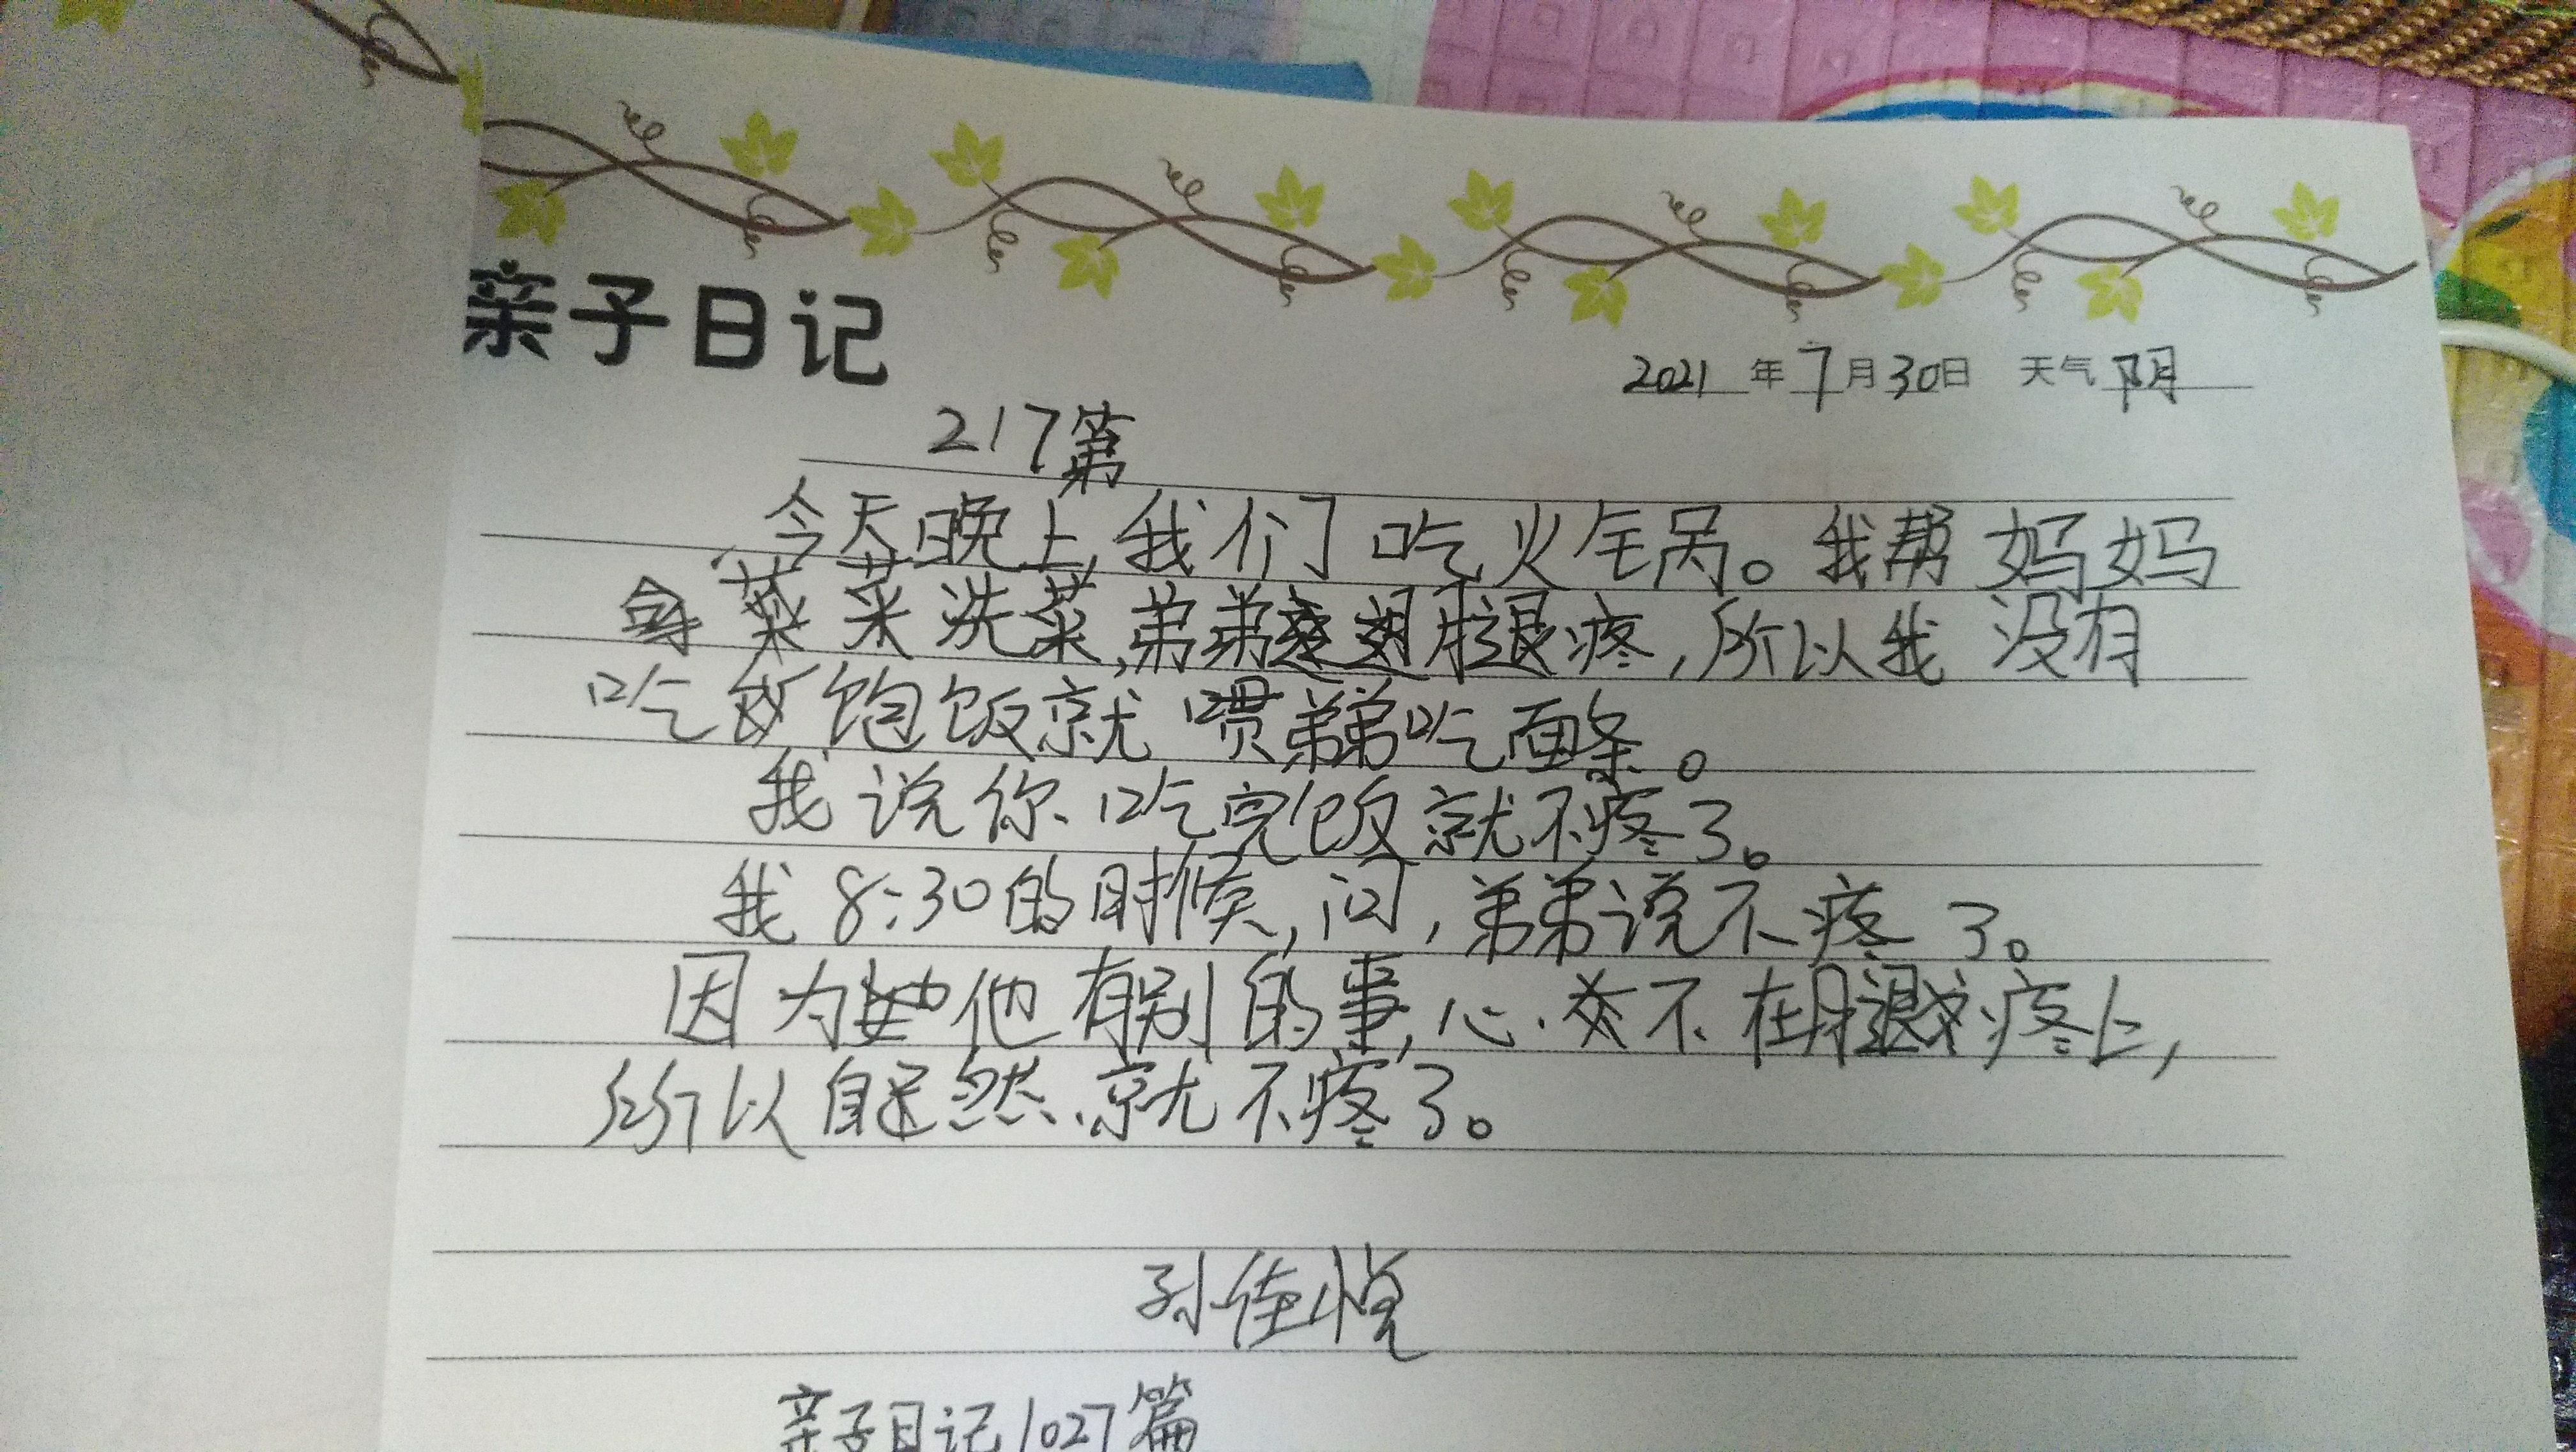 亲子日记
2021年7月30日 天气 阴
217第
今天晚上,我们吃火锅。我帮妈妈
菜洗菜,弟弟腿疼,所以我没有
吃饱饭就喂弟弟吃面条。
我说你吃完饭就不疼了。
我8:30的时候,问,弟弟说不疼了。
因为他有别的事,心不在腿疼上,
所以自然就不疼了。
孙佳悦
亲子日记1027篇